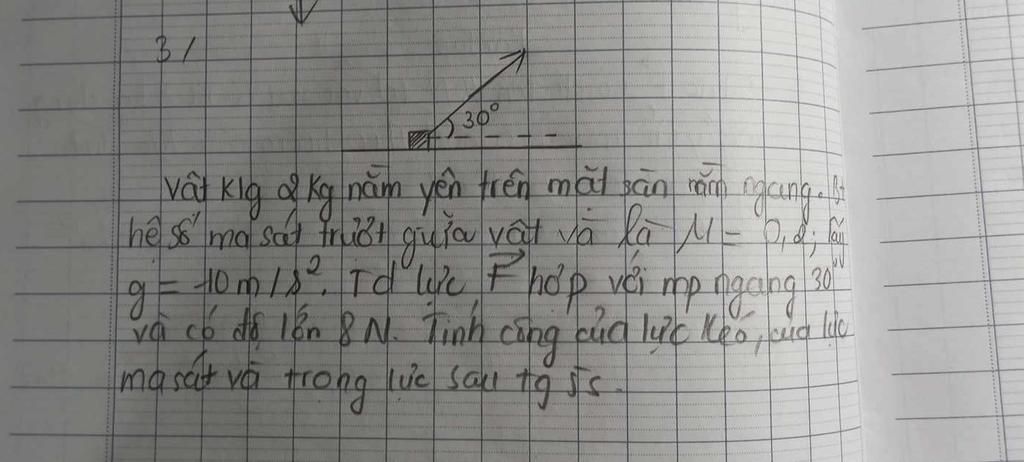 3/
30°
Vật klg 2 Kg nằm yên trên mặt sàn nằm ngang. Bt
hệ số ma sát trượt giữa vật và là μ = 0,2; lấy
g = 10 m/s². Td lực F⃗ hợp với mp ngang 30°
và có độ lớn 8 N. Tính công của lực kéo, của lực
ma sát và trong lực sau tg 5s.